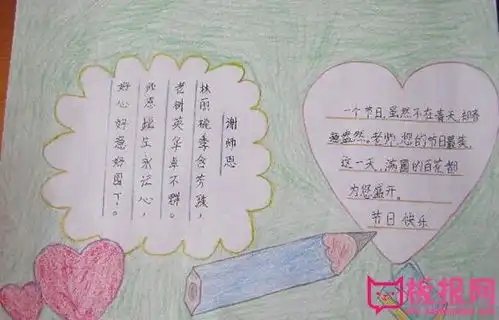 谢师恩
林丽桃季含芳蕤，
老树英华卓不群。
此恩毗生永记心，
好心好意好园丁。
一个节日，虽然不在春天，却春
意盎然。老师，您的节日最美，
这一天，满园的百花都
为您盛开。
节日快乐
板报网